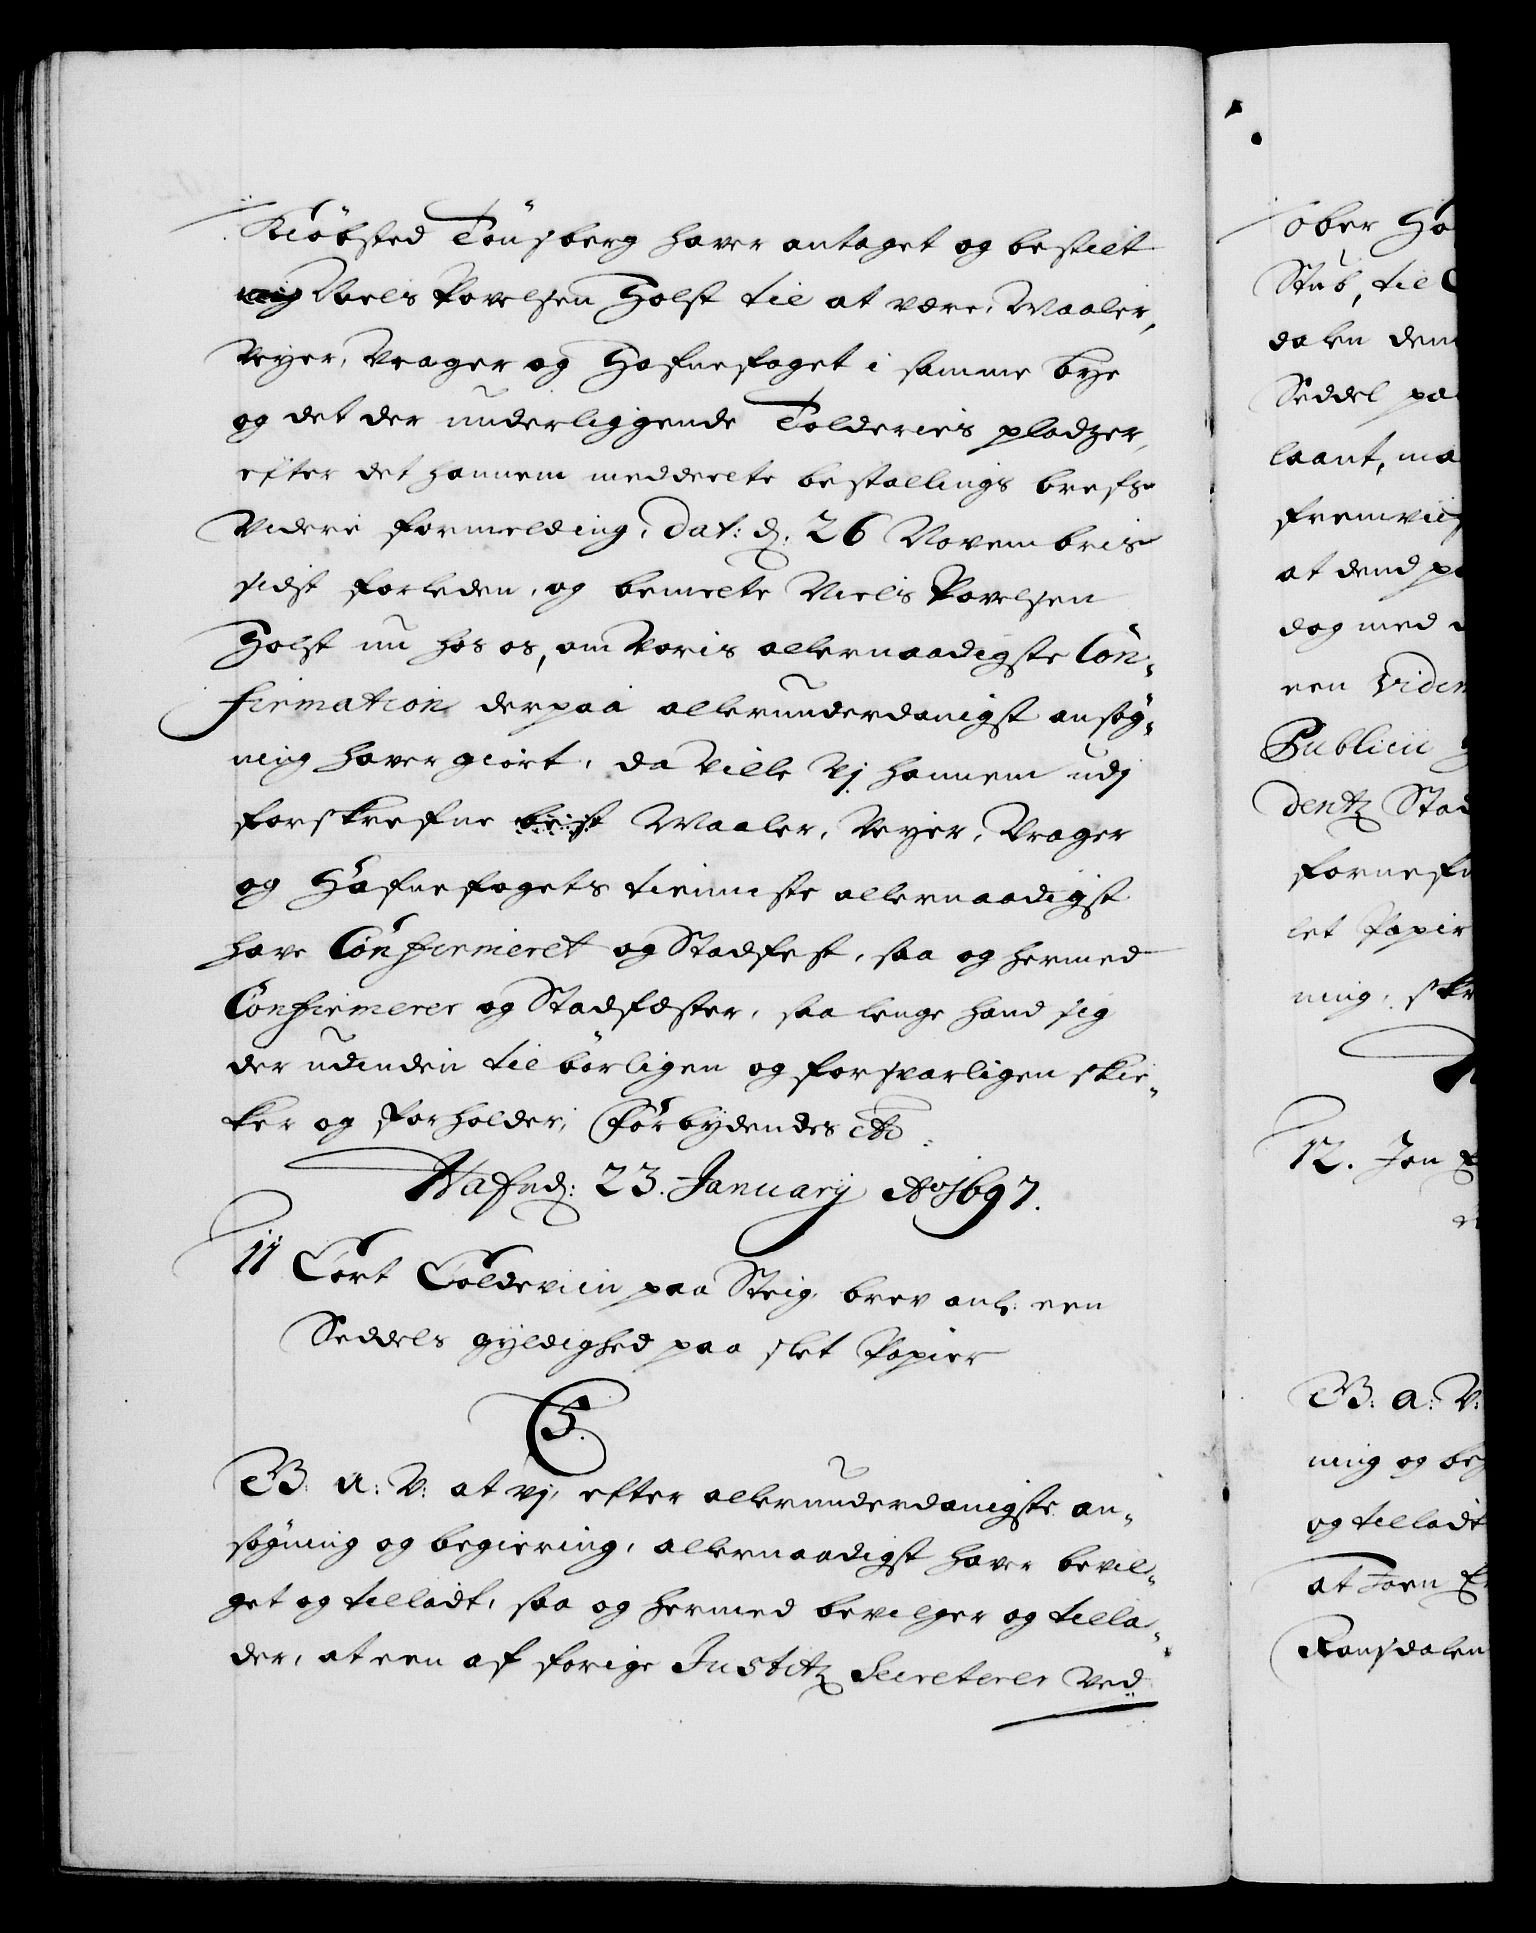 Kiöbsted Tönsberg haver antaget og bestilt
Niels Povelsen Holst til at være, Maaler,
Vejer, Vrager og Hafnefoget i samme bye
og det der underliggende Tolderies pladzer,
efter det hannem meddeelte bestallings brefs
videre formelding, Dat: d. 26 Novembris
sidst forleden, og bemelte Niels Povelsen
Holst nu hos os, om Voris allernaadigste Con-
firmation derpaa allerunderdanigst ansøg-
ning haver giort, da Ville Vj hannem udj
forskrefne best Maaler, Vejer, Vrager
og Hafnefogets tienniste allernaadigst
have Confirmeret og Stadfest, saa og hermed
Confirmerer og Stadfæster, saa lenge hand sig
der udinden tilbörligen og forsvarligen skic-
ker og forholder, Forbydendes etc:
Hafn d: 23. Januarij Ao 1697.
11 Cort Coldeviin paa Steig, brev anl: een
Seddels gyldighed paa slet Papier
C5.
G: A: V: at vj, efter allerunderdanigste an-
søgning og begiering, allernaadigst haver bevil-
get og tilladt, saa og hermed bevilger og tilla-
der, at een af forige Justitz Secreterer Ved
ober Ho
Stub, til C
dalen den
Seddel pa
laant, ma
fremviis
at dend p
dog med
een Vidim
Publicii
dentz Stad
fornefn
let Papir
ning, skr
12. Jon
G: A: V:
ning og beg
og tilladt
at Joen
Romsdalen